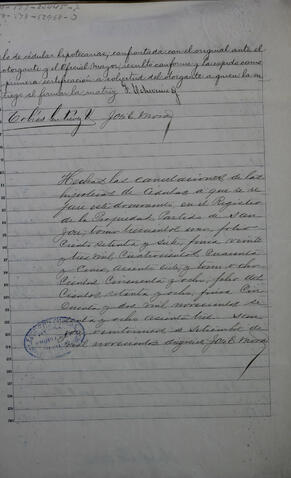 lo de cédulas hipotecarias, confrontada con el original ante el
otorgante y el Oficial Mayor, resulto conforme y la expido como
primera certificación a solicitud del otorgante a quien la en
trego al firmar la matriz
José E. Mora
Hechas las cancelaciones de las
hipotecas de Cédulas a que se re
fiere este documento en el Registro
de la Propiedad, Partido de San
José, tomo trescientos uno, folio
Ciento setenta y siete, finca veinte
y tres mil, Cuatrocientos Cuarenta
y Cinco, asiento siete, y tomo ocho
cientos Cincuenta y ocho, folio dos
cientos setenta y ocho, finca Cin
cuenta y dos mil novecientos se
senta y ocho asiento tres. San
José veintinueve de Setiembre de
mil novecientos José E. Mora